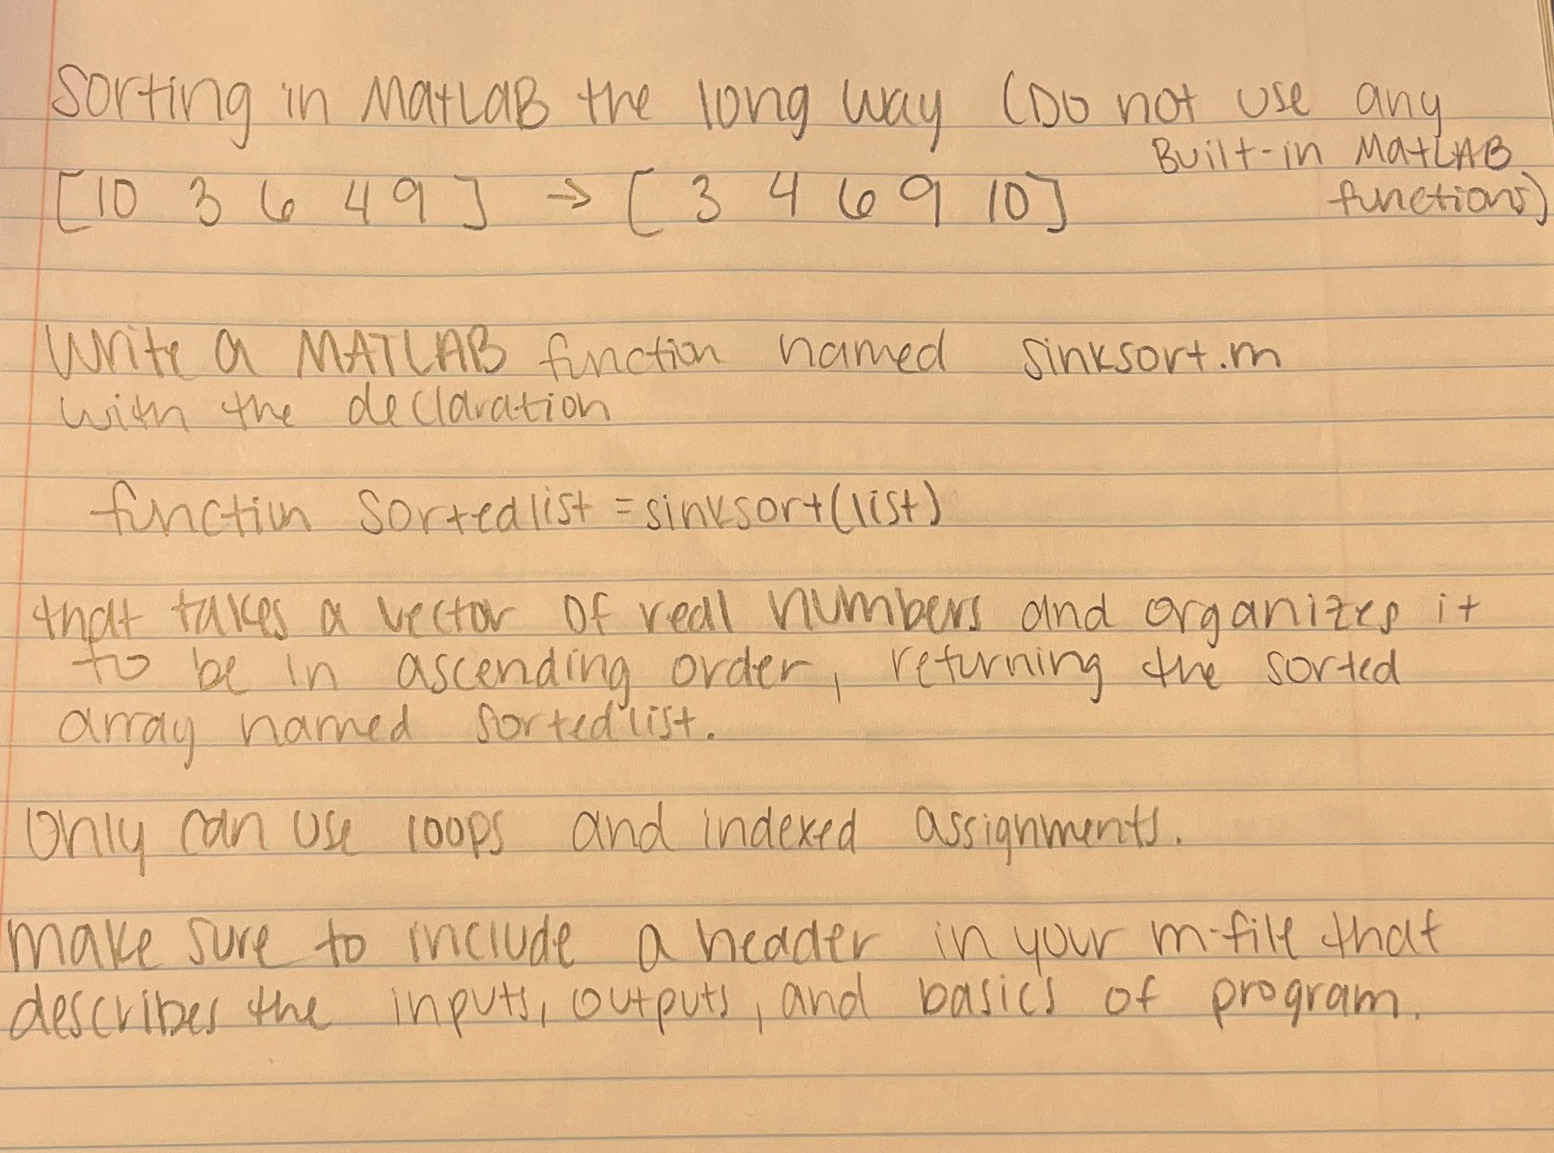 Sorting in MatLAB the long way (Do not use any
Built-in MatLAB
functions)
[10 3 6 4 9] → [3 4 6 9 10]
Write a MATLAB function named sinksort.m
with the declaration
function sortedlist = sinksort(list)
that takes a vector of real numbers and organizes it
to be in ascending order, returning the sorted
array named sortedlist.
Only can use loops and indexed assignments.
make sure to include a header in your m-file that
describes the inputs, outputs, and basics of program.